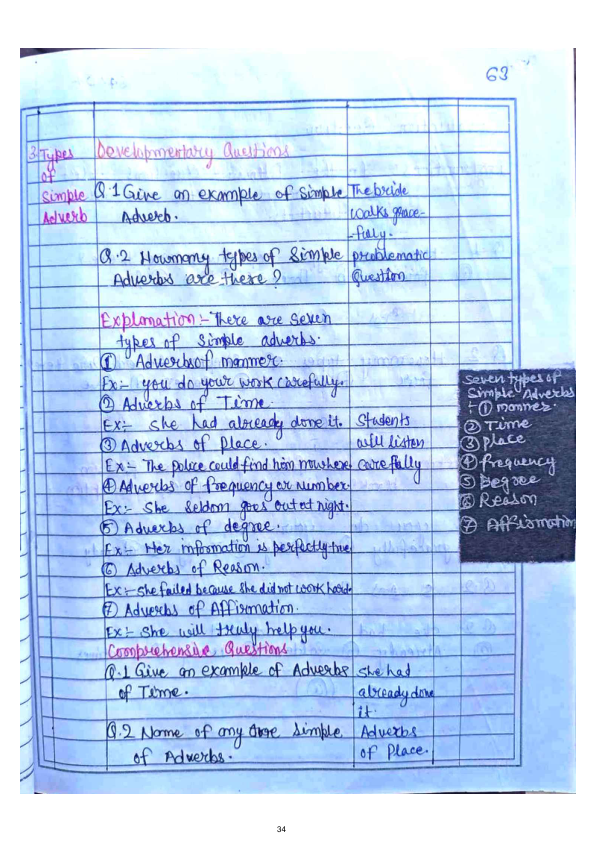 63
3. Types
of
Simple
Adverb
Developmentary Questions
Q.1 Give an example of Simple
Adverb.
The bride
walks grace-
-fully.
Q.2 Howmany types of Simple
Adverbs are there?
problematic
Question
Explanation:- There are Seven
types of Simple adverbs.
① Adverbs of manner.
Ex:- you do your work carefully.
② Adverbs of Time.
Ex:- She had already done it.
③ Adverbs of Place.
Ex:- The police could find him nowhere
④ Adverbs of frequency or number.
Ex:- She Seldom goes out at night.
⑤ Adverbs of degree.
Ex:- Her information is perfectly true
⑥ Adverbs of Reason.
Ex:- She failed because She did not work hard.
⑦ Adverbs of Affirmation.
Ex:- She will truly help you.
Students
will listen
carefully
Seven types of
Simple Adverbs
:- ① manner.
② Time
③ place
④ frequency
⑤ Degree
⑥ Reason
⑦ Affirmation
Comprehensive Questions
Q.1 Give an example of Adverbs
of Time.
She had
already done
it.
Q.2 Name of any one Simple
of Adverbs.
Adverbs
of Place.
34